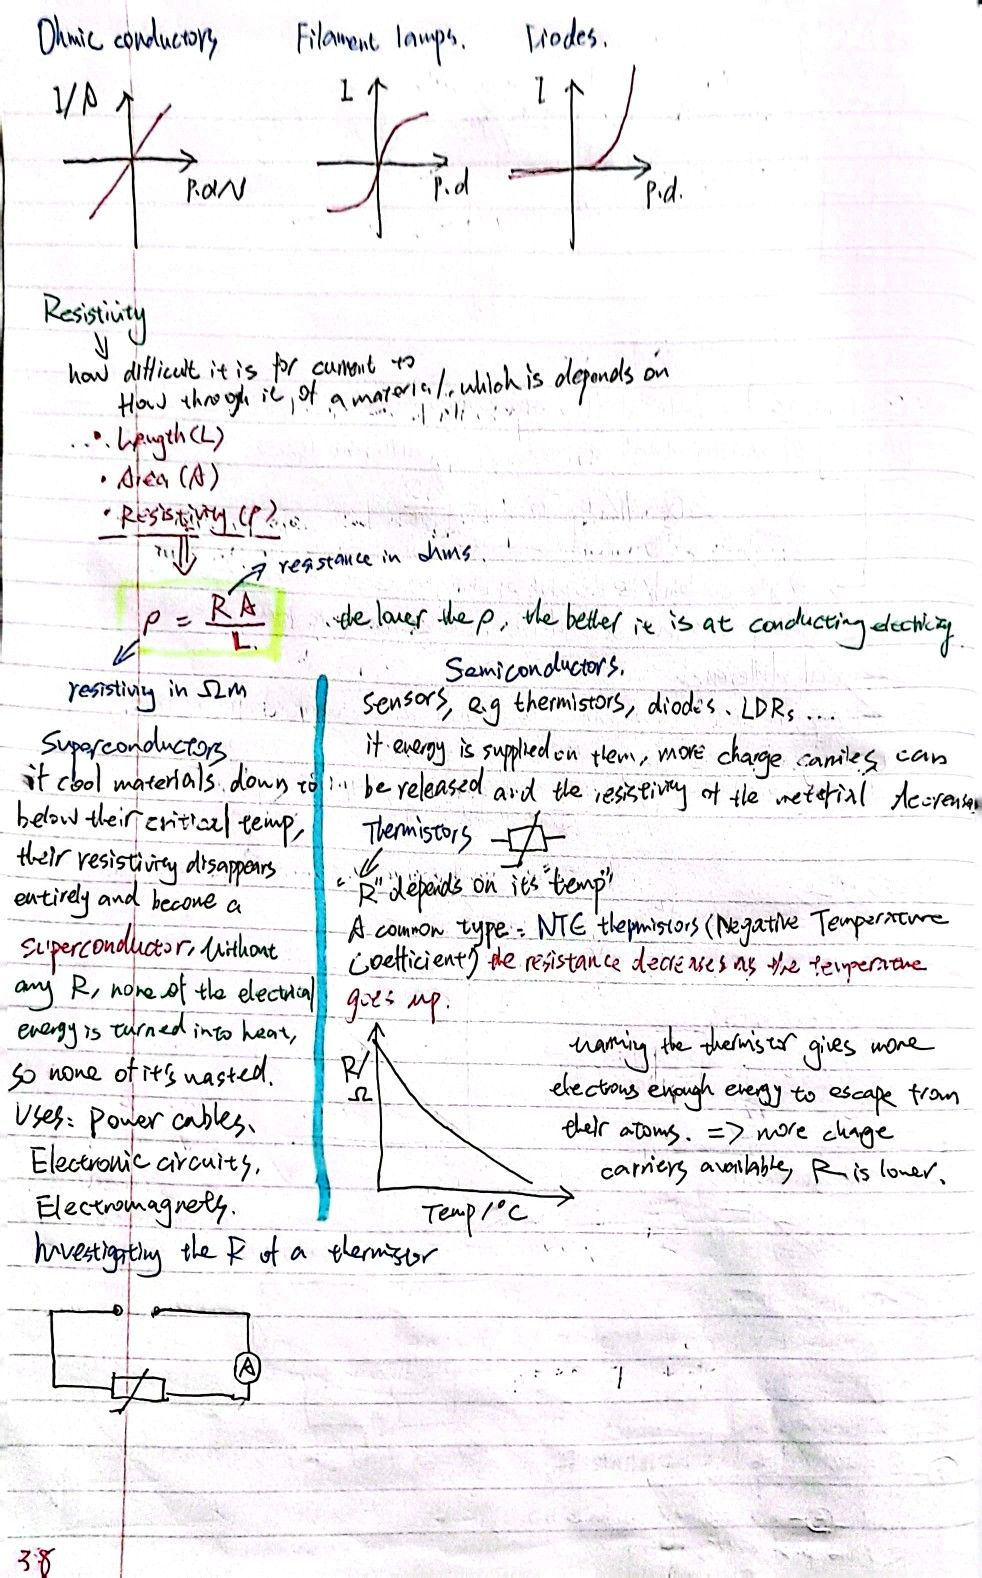 Ohmic conductors Filament lamps. Diodes.
I/A I I
P.d/V P.d P.d.
Resistivity
how difficult it is for current to
flow through it, of a material, which is depends on
• Length (L)
• Area (A)
• Resistivity (ρ)
resistance in ohms.
ρ = RA/L. the lower the ρ, the better it is at conducting electricity.
resistivity in Ωm
Superconductors
if cool materials down to
below their critical temp,
their resistivity disappears
entirely and become a
superconductor, without
any R, none of the electrical
energy is turned into heat,
so none of it's wasted.
Uses: Power cables,
Electronic circuits,
Electromagnets.
Semiconductors.
sensors, e.g thermistors, diodes, LDRs ...
if energy is supplied on them, more charge carriers can
be released and the resistivity of the material decreases
Thermistors
"R" depends on its "temp"
A common type: NTC thermistors (Negative Temperature
Coefficient) the resistance decreases as the temperature
goes up.
R/
Ω
Temp/°C
warming the thermistor gives more
electrons enough energy to escape from
their atoms. => more charge
carriers available, R is lower.
Investigating the R of a thermistor
A
38